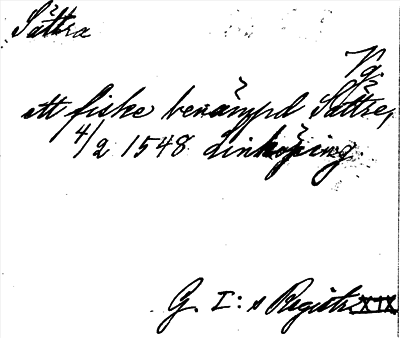 Sättra
Vg.
ett fiske benämpd Sättre,
4/2 1548 Linköping.
G. I:s Registr. XIX